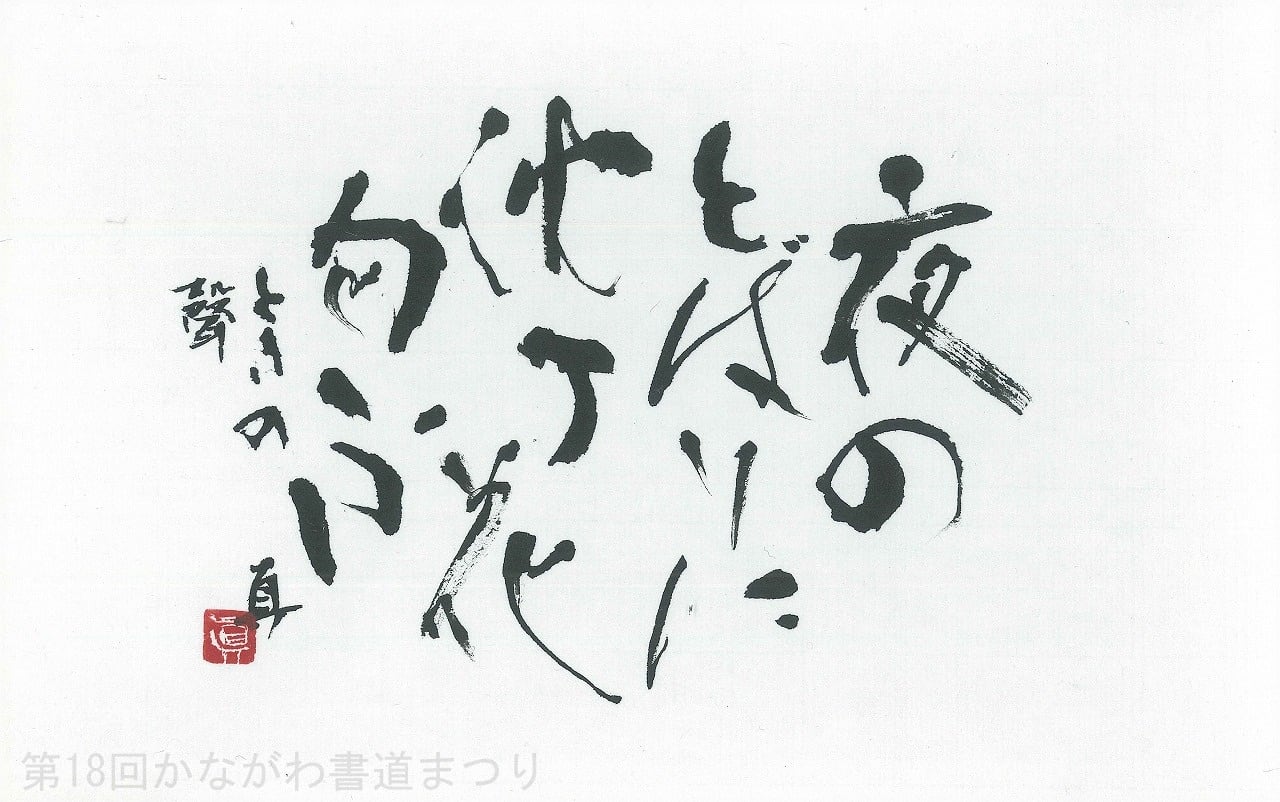 夜の
とばりに
沈丁花
匂ふ
ときの
聲
直
眞
第18回かながわ書道まつり